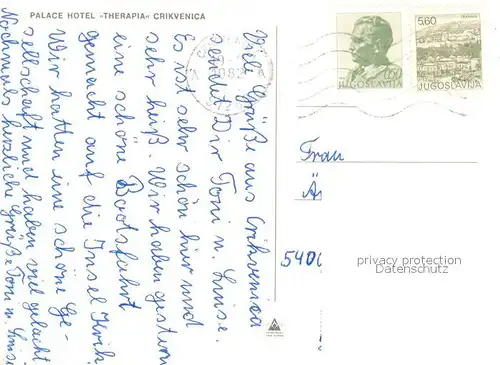 PALACE HOTEL »THERAPIA« CRIKVENICA
Viel Grüße aus Crikvenica
sendet Dir Toni u. Luise.
Es ist sehr schön hier und
sehr heiß. Wir haben gestern
eine schöne Bootsfahrt
gemacht auf die Insel Krk.
Wir hatten eine schöne Ge-
sellschaft und haben viel gelacht
Nochmals herzliche Grüße Toni u. Luise
0,50
JUGOSLAVIJA
5,60
JUGOSLAVIJA
Frau
5400
privacy protection
Datenschutz